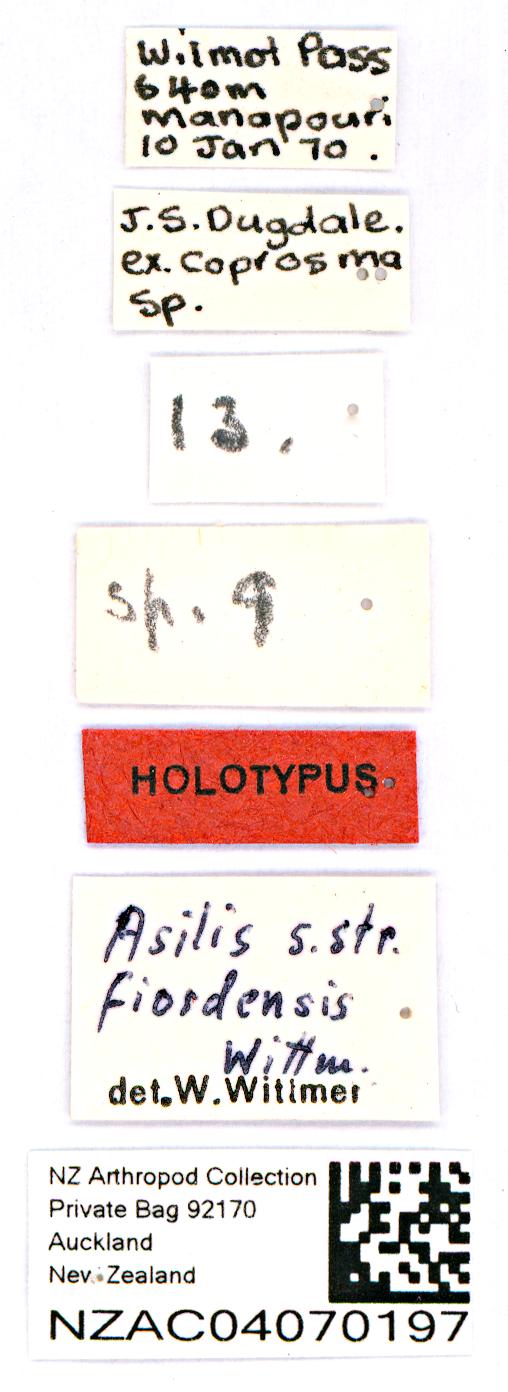 Wilmot Pass
640m
manapouri
10 Jan 70.
J.S. Dugdale.
ex. Coprosma
sp.
13.
sp. 9
HOLOTYPUS
Asilis s.str.
fiordensis
Wittm.
det.W.Wittmer
NZ Arthropod Collection
Private Bag 92170
Auckland
New Zealand
NZAC04070197